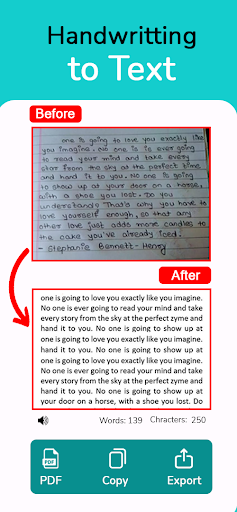 Handwritting
to Text
Before
one is going to love you exactly like
you imagine. No one is is ever going
to read your mind and take every
star from the sky at the perfect time
and hand it to you. No one is going
to show up at your door on a horse,
with a shoe you lost. Do you
understand? That's why you have to
love yourself enough, so that any
other love just adds more candles to
the cake you've already iced.
- Stephanie Bennett-Henry
After
one is going to love you exactly like you imagine.
No one ever is going to read your mind and take
every story from the sky at the perfect zyme and
hand it to you. No one is going to show up at
one is going to love you exactly like you imagine.
hand it to you. No one is going to show up at
one is going to love you exactly like you imagine.
No one ever is going to read your mind and take
every story from the sky at the perfect zyme and
hand it to you. No one is going to show up at
your door on a horse, with a shoe you lost. Do
Words: 139 Chracters: 250
PDF
PDF Copy Export